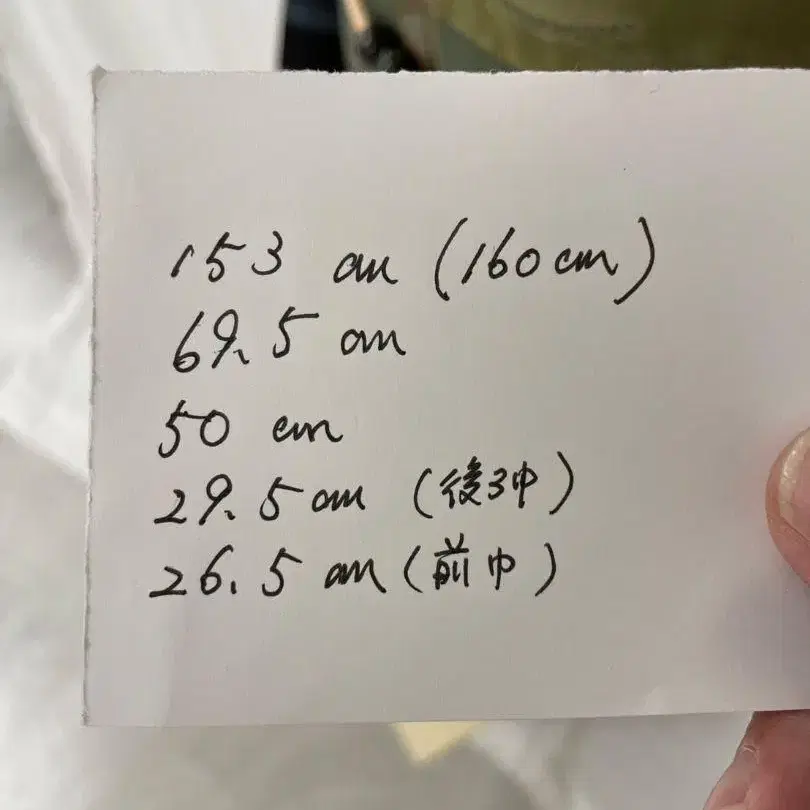 153 cm (160cm)
69.5 cm
50 cm
29.5cm (後ろ巾)
26.5 cm (前巾)